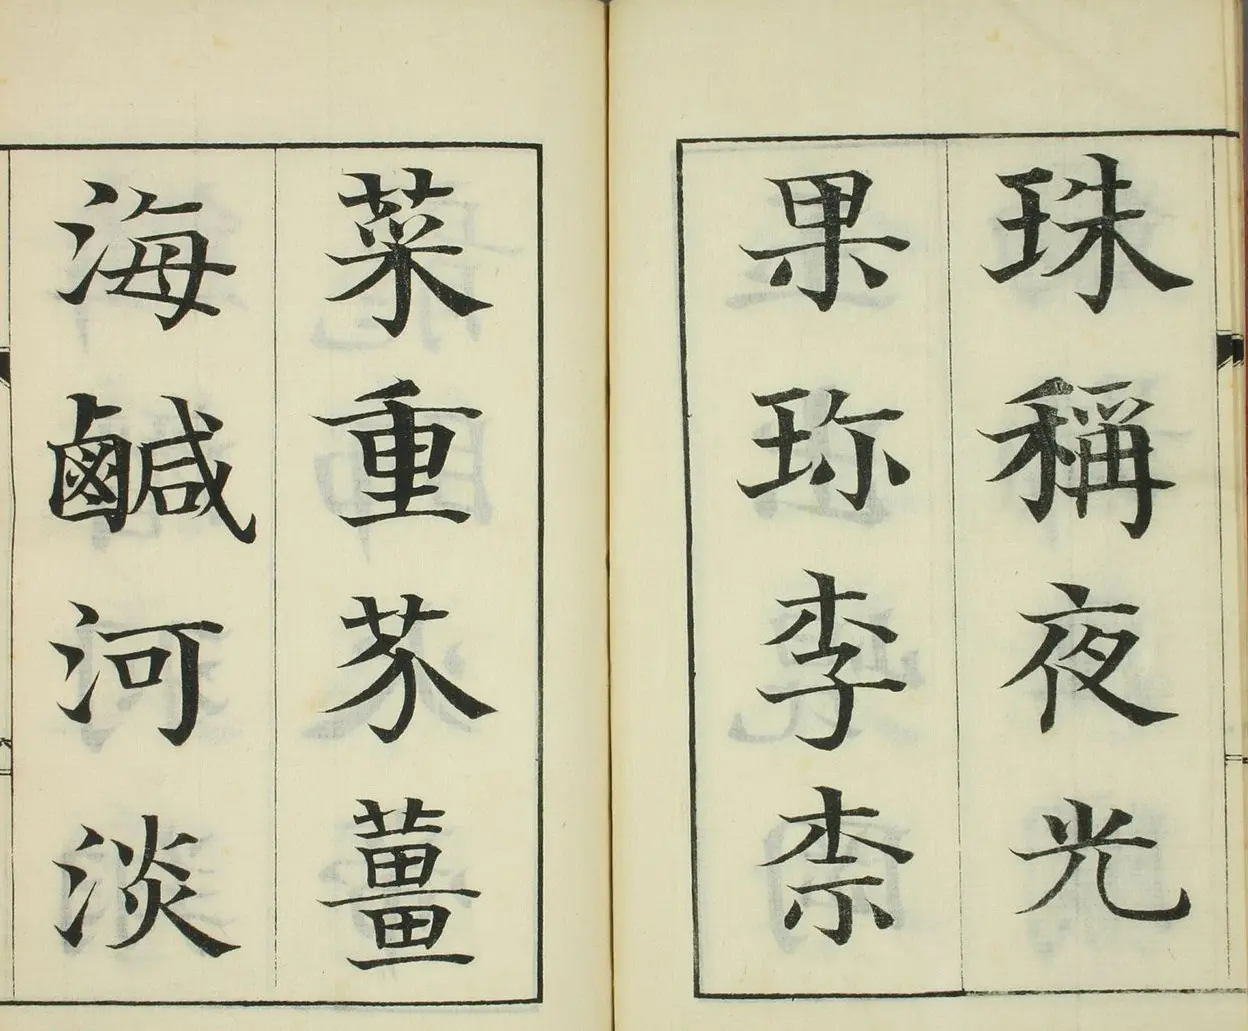 珠稱夜光
果珎李柰
菜重芥薑
海鹹河淡